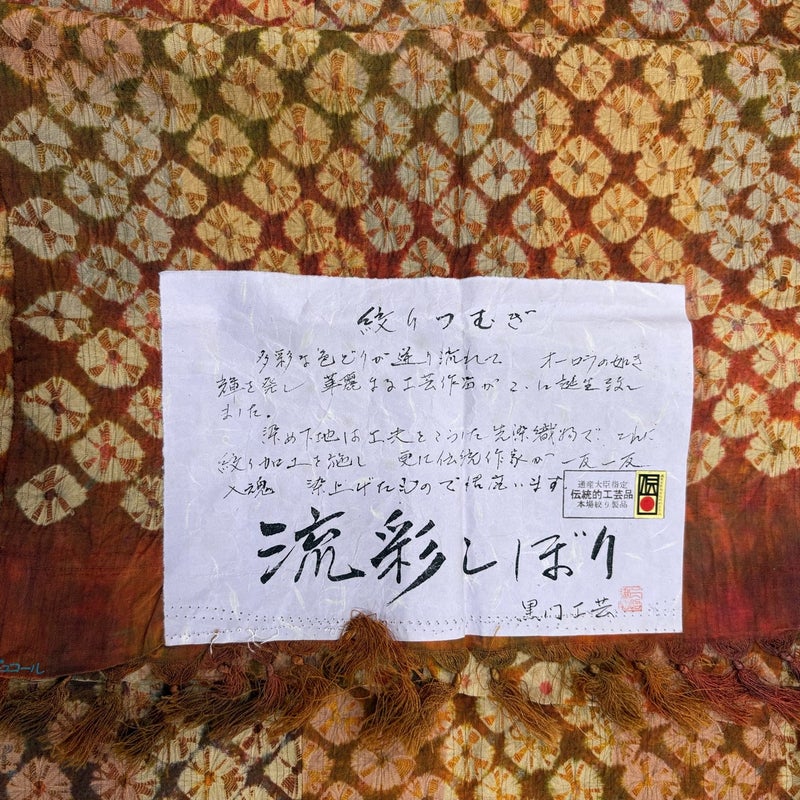 絞りつむぎ
多彩な色どりが迸り流れて オーロラの如き
輝を発し 華麗なる工芸作品がここに誕生致し
ました。
染め下地は工夫をこらした先染織物で、これに
絞り加工を施し 更に伝統作家が一反一反
入魂 染上げたものでございます
通産大臣指定
伝統的工芸品
本場絞り製品
伝
流彩しぼり
黒川工芸
コール